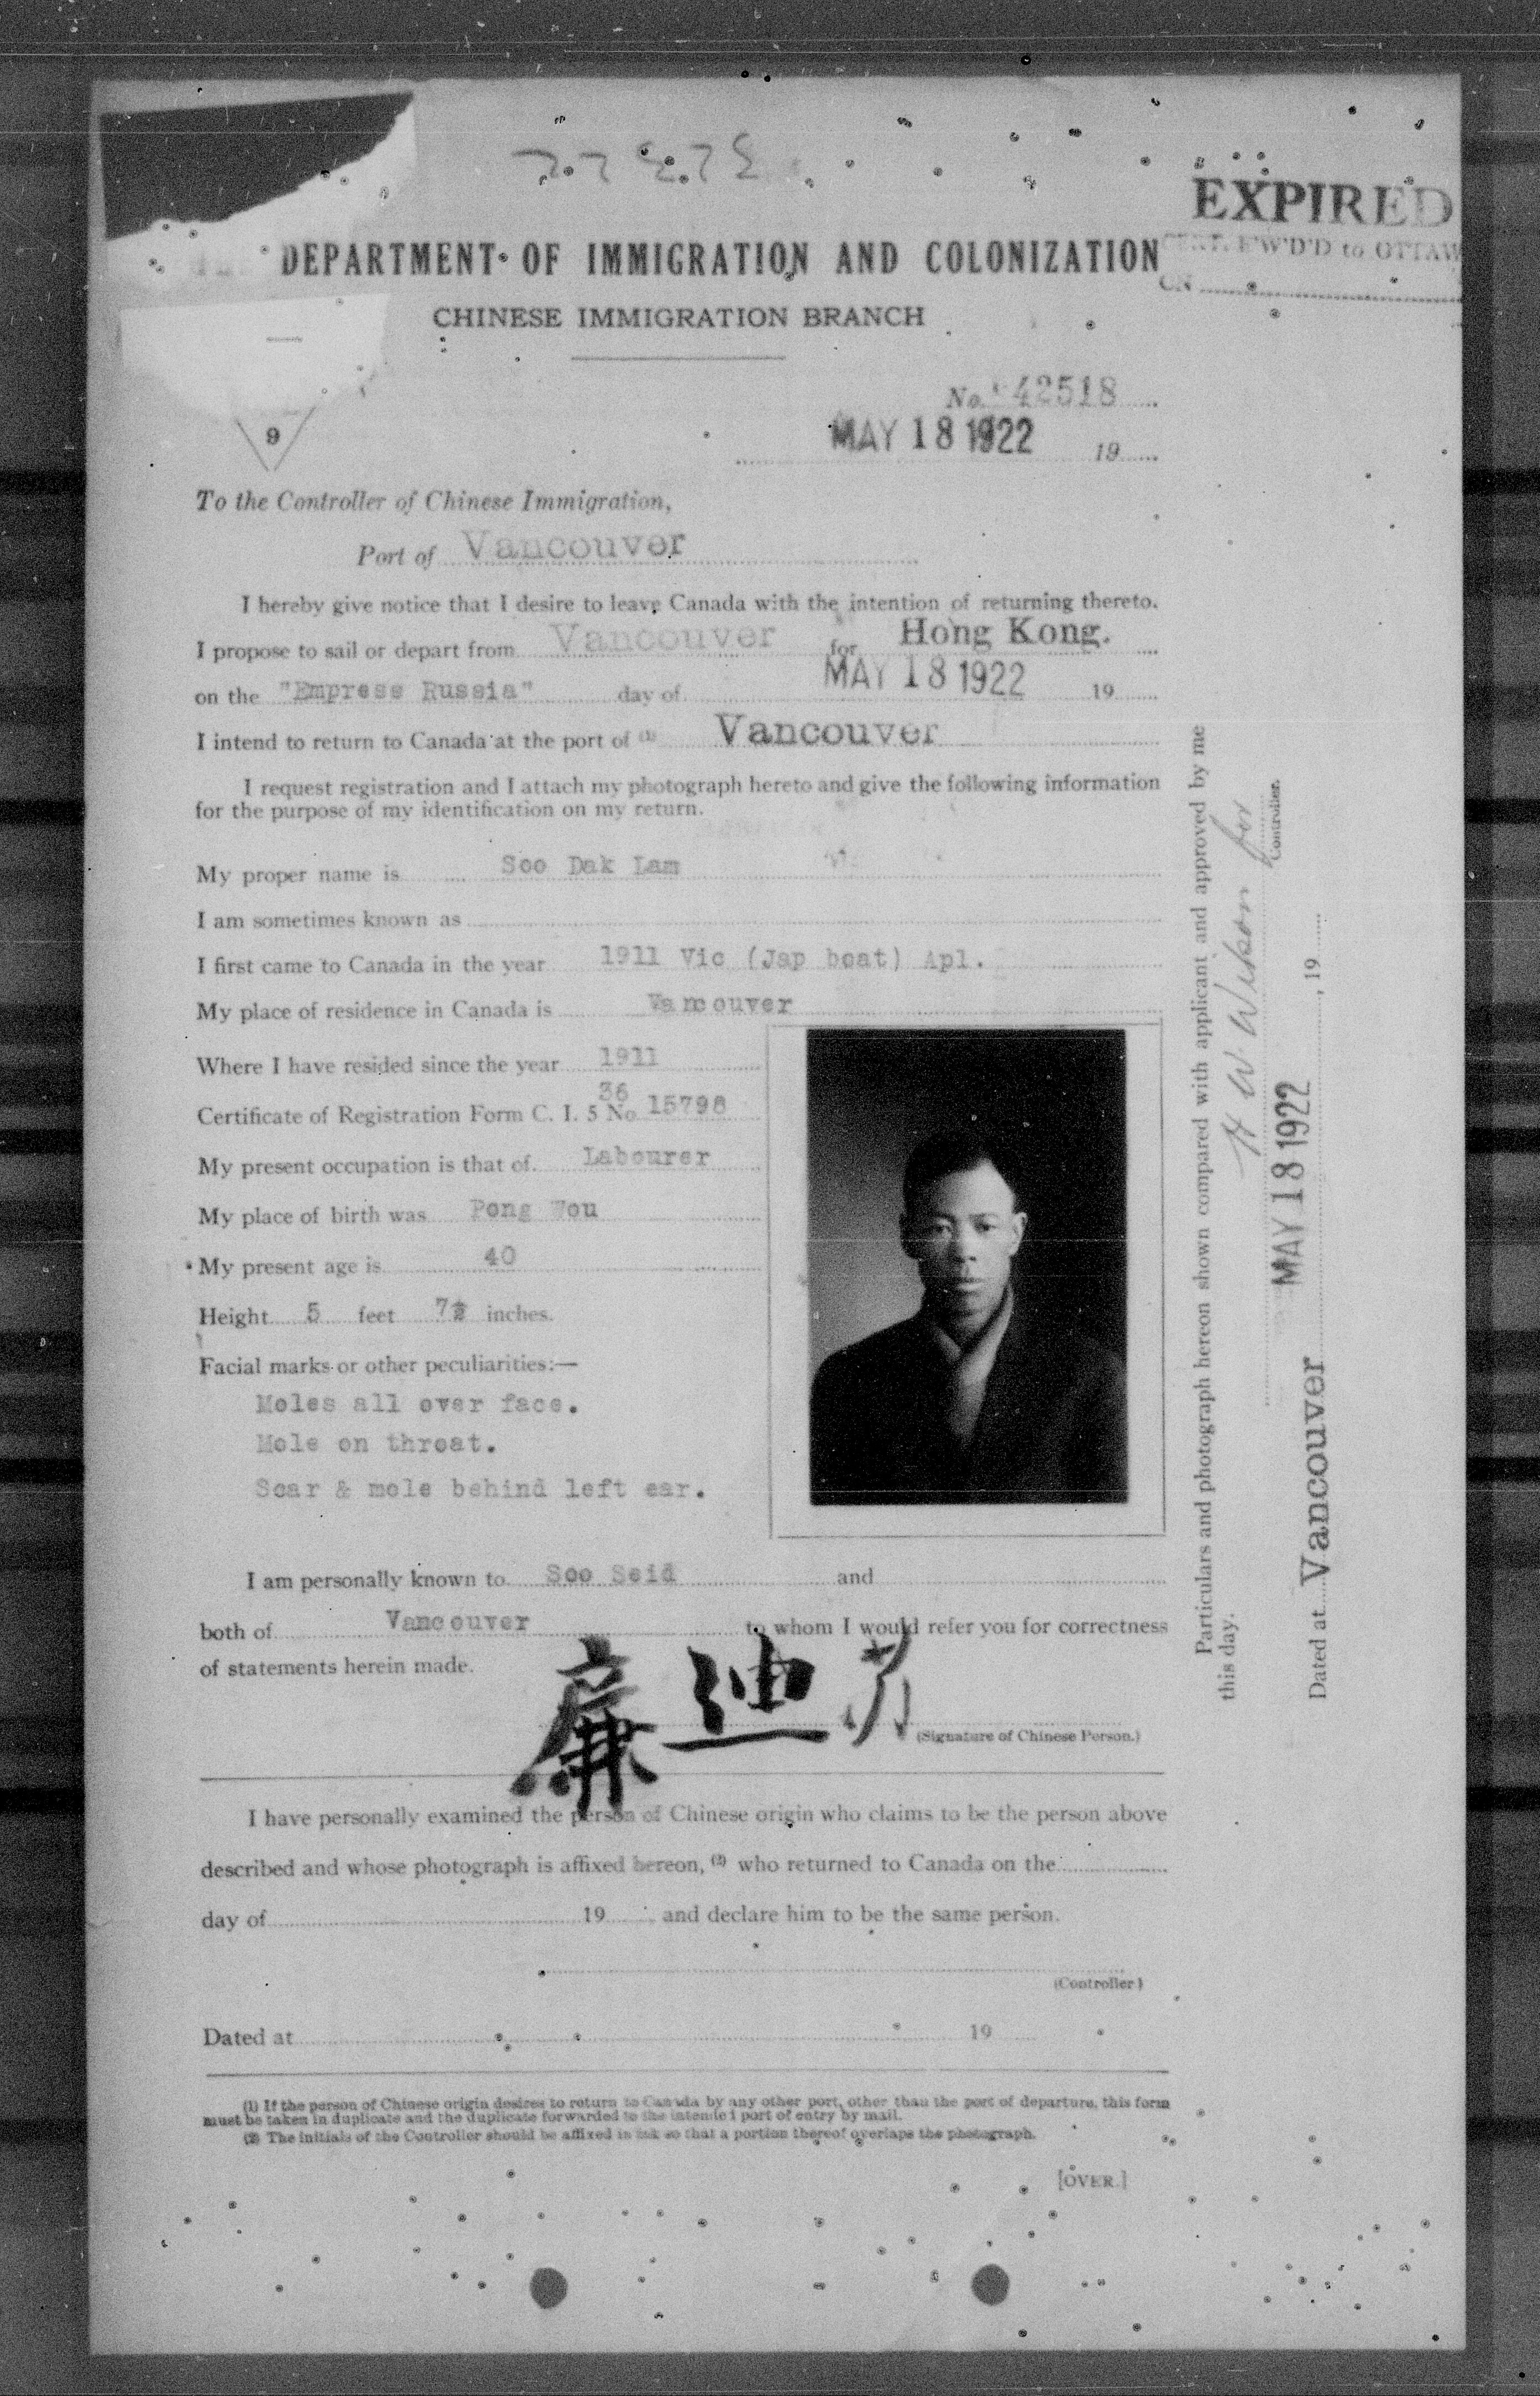 EXPIRED
CERT. F'W'D'D to OTTAW
ON
DEPARTMENT OF IMMIGRATION AND COLONIZATION
CHINESE IMMIGRATION BRANCH
No. 42518
MAY 18 1922 19
9
To the Controller of Chinese Immigration,
Port of Vancouver
I hereby give notice that I desire to leave Canada with the intention of returning thereto.
I propose to sail or depart from Vancouver for Hong Kong.
on the "Empress Russia" day of MAY 18 1922 19
I intend to return to Canada at the port of (1) Vancouver
I request registration and I attach my photograph hereto and give the following information
for the purpose of my identification on my return.
My proper name is Soo Dak Lam
I am sometimes known as
I first came to Canada in the year 1911 Vic (Jap boat) Apl.
My place of residence in Canada is Vancouver
Where I have resided since the year 1911
36
Certificate of Registration Form C. I. 5 No. 15798
My present occupation is that of Labourer
My place of birth was Pong Wou
My present age is 40
Height 5 feet 7½ inches.
Facial marks or other peculiarities:—
Moles all over face.
Mole on throat.
Scar & mole behind left ear.
I am personally known to Soo Seid and
both of Vancouver to whom I would refer you for correctness
of statements herein made.
廉迪
(Signature of Chinese Person.)
I have personally examined the person of Chinese origin who claims to be the person above
described and whose photograph is affixed hereon, (2) who returned to Canada on the
day of 19 and declare him to be the same person.
(Controller)
Dated at 19
(1) If the person of Chinese origin desires to return to Canada by any other port, other than the port of departure, this form
must be taken in duplicate and the duplicate forwarded to the intended port of entry by mail.
(2) The initials of the Controller should be affixed in ink so that a portion thereof overlaps the photograph.
[OVER.]
Particulars and photograph hereon shown compared with applicant and approved by me
this day.
H W Wilson for
Controller.
MAY 18 1922
Dated at Vancouver , 19